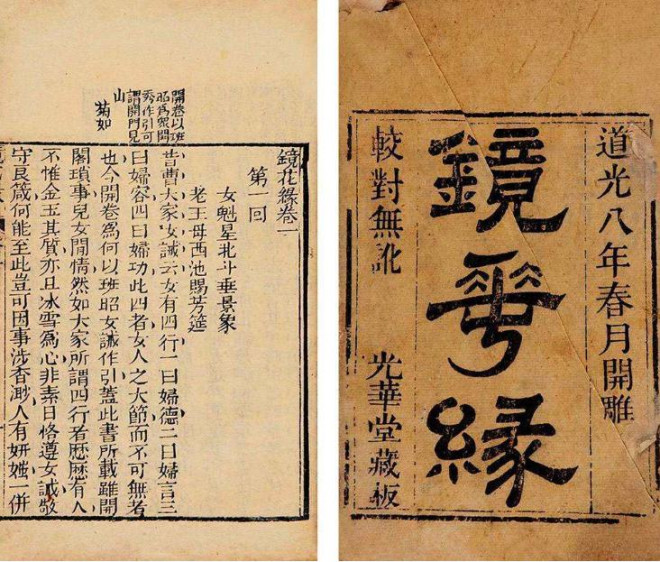 道光八年春月開雕
鏡華緣
較對無訛
光華堂藏板
開卷以班
昭爲眾閨
秀作引可
謂開門見
山
菊如
鏡花緣卷一
第一回
女魁星北斗垂景象
老王母西池賜芳筵
昔曹大家女誡云女有四行一曰婦德二曰婦言三
曰婦容四曰婦功此四者女人之大節而不可無者
也今開卷爲何以班昭女誡作引蓋此書所載雖閨
閣瑣事兒女閒情然如大家所謂四行者歴歴有人
不惟金玉其質亦且冰雪爲心非素日恪遵女誡敬
守良箴何能至此豈可因事涉香渺人有妍媸一併